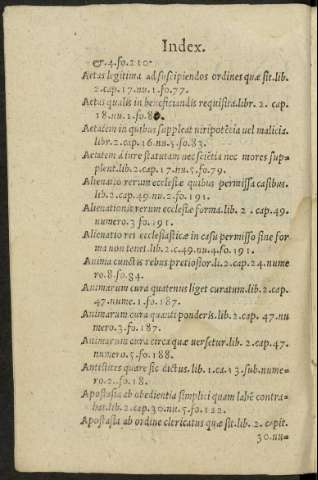 Index.
&.4.fo.210.
Aetas legitima ad suscipiendos ordines quæ sit.lib.
2.cap.17.nu.1.fo.77.
Aetas qualis in beneficiandis requisita.libr.2. cap.
18.nu.1.fo.80.
Aetatem in quibus suppleat uiripotẽcia uel malicia.
libr.2.cap.16.nu.5.fo.83.
Aetatem a iure statutam nec sciẽtia nec mores sup-
plent.lib.2.cap.17.nu.5.fo.79.
Alienatio rerum ecclesiæ quibus permissa casibus.
lib.2.cap.49.nu.2.fo.191.
Alienationis rerum ecclesiæ forma.lib. 2 .cap.49.
numero.3 fo.191.
Alienatio rei ecclesiasticæ in casu permisso sine for
ma non tenet.lib.2.c.49.nu.4.fo.191.
Anima cunctis rebus preciosior.li.2.cap.24.nume
ro.8.fo.94.
Animarum cura quatenus liget curatum.lib.2.cap.
47.nume.1.fo.187.
Animarum cura quãti ponderis.lib.2.cap. 47.nu
mero.3.fo.187.
Animarum cura circa quæ uersetur.lib.2.cap.47.
numero.5.fo.188.
Antistites quare sic dictus.lib.1.ca.13.sub.nume-
ro.2..fo.18.
Apostasia ab obedientia simplici quam labẽ contra-
hat.lib.2.cap.30.nu.5.fo.122.
Apostasia ab ordine clericatus quæ sit.lib.2. capit.
30.nu=